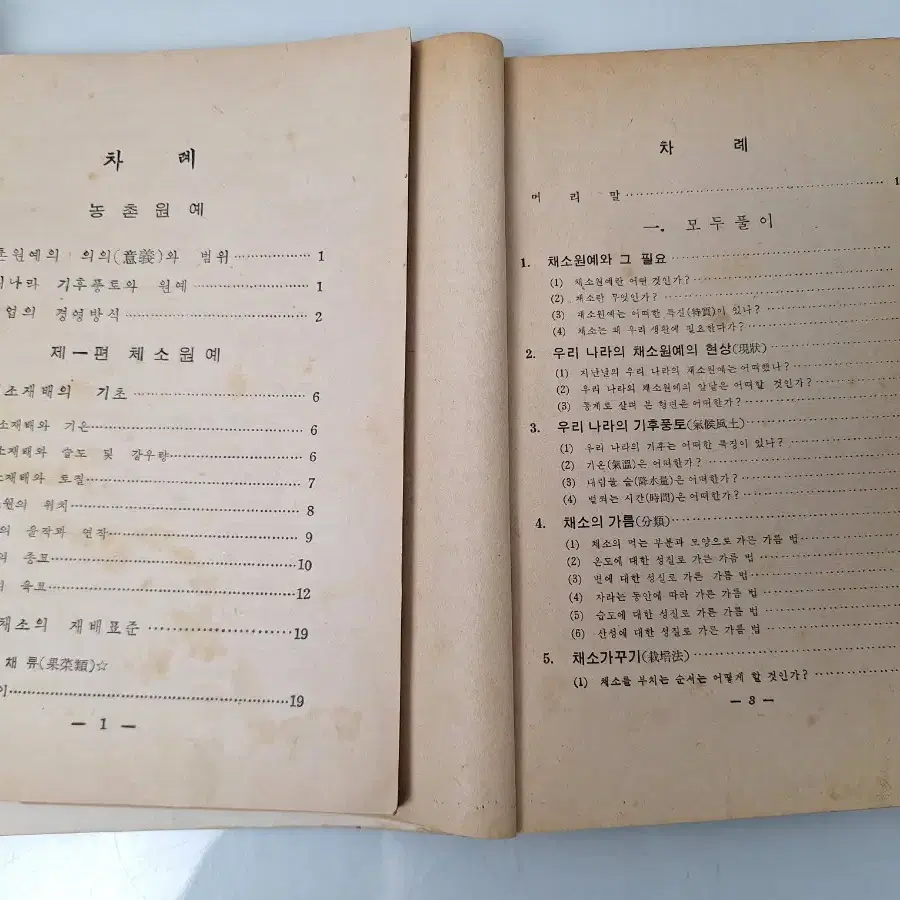 차 례
농촌원예
촌원예의 의의(意義)와 범위 1
리나라 기후풍토와 원예 1
업의 경영방식 2
제一편 채소원예
소재배의 기초 6
소재배와 기온 6
소재배와 습도 및 강우량 6
소재배와 토질 7
원의 위치 8
의 윤작과 연작 9
의 종묘 10
의 육묘 12
채소의 재배표준 19
채류(果菜類)☆
이 19
— 1 —
차 례
머 리 말 1
一. 모두풀이
1. 채소원예와 그 필요
(1) 채소원예란 어떤 것인가?
(2) 채소란 무엇인가?
(3) 채소원예는 어떠한 특질(特質)이 있나?
(4) 채소는 왜 우리 생활에 필요한다가?
2. 우리 나라의 채소원예의 현상(現狀)
(1) 지난날의 우리 나라의 채소원예는 어떠했나?
(2) 우리 나라의 채소원예의 앞날은 어떠할 것인가?
(3) 통계로 살펴 본 형편은 어떠한가?
3. 우리 나라의 기후풍토(氣候風土)
(1) 우리 나라의 기후는 어떠한 특징이 있나?
(2) 기온(氣溫)은 어떠한가?
(3) 내림물 술(降水量)은 어떠한가?
(4) 볕쬐는 시간(時間)은 어떠한가?
4. 채소의 가름(分類)
(1) 채소의 먹는 부분과 모양으로 가른 가름 법
(2) 온도에 대한 성질로 가른 가름 법
(3) 볕에 대한 성질로 가른 가름 법
(4) 자라는 동안에 따라 가른 가름 법
(5) 습도에 대한 성질로 가른 가름 법
(6) 산성에 대한 성질로 가른 가름 법
5. 채소가꾸기(栽培法)
(1) 채소를 부치는 순서는 어떻게 할 것인가?
— 3 —